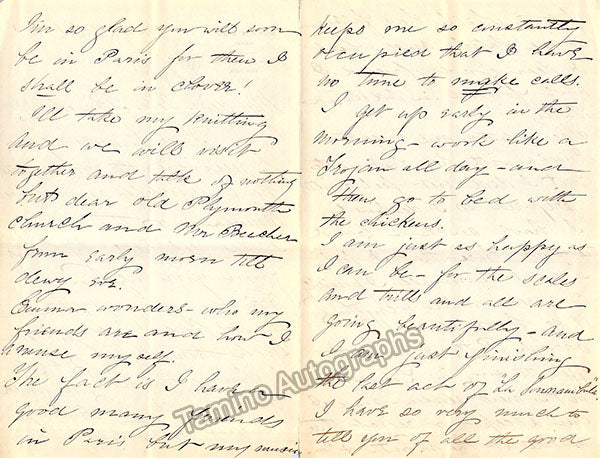 I'm so glad you will soon
be in Paris for then I
shall be in clover!
I'll take my knitting
and we will visit
together and talk of nothing
but dear old Plymouth
church and Mr Beecher
from early morn till
dewy eve.
wonders - who my
friends are and how I
amuse myself.
The fact is I have a
good many friends
in Paris but my music
keeps me so constantly
occupied that I have
no time to make calls.
I get up early in the
morning - work like a
Trojan all day - and
then go to bed with
the chickens.
I am just as happy as
I can be - for the scales
and trills and all are
going beautifully - and
I am just finishing
the last act of "La Sonnambula".
I have so very much to
tell you of all the good
Tamino Autographs